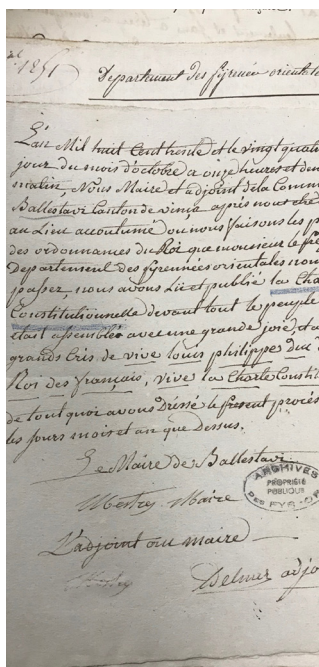 1851
Departement des pyrenées oriental
L'an Mil huit Cent trente et le vingt quat
jour du mois d'octobre a onze heures et dem
matin, Nous Maire et adjoint de la Comm
Ballestavi Canton de vinça après nous etre
au Lieu accoutumé ou nous faisons les p
des ordonnances du Roi que monsieur le Pre
Departement des pyrennées orientales nou
passer, nous avons Lu et publié la Char
Constitutionnelle devant tout le peuple
etait assemblés avec une grande joie, et a
grands Cris de vive louis philippe
Roi des français, vive la Charte Constit
de tout quoi avons Dréssé le present procés
les jours mois et an que Dessus.
Le Maire de Ballestavi
Mestre Maire
L'adjoint au maire
Delmer adjo
ARCHIVES
PROPRIÉTÉ
PUBLIQUE
DES PYR-OR